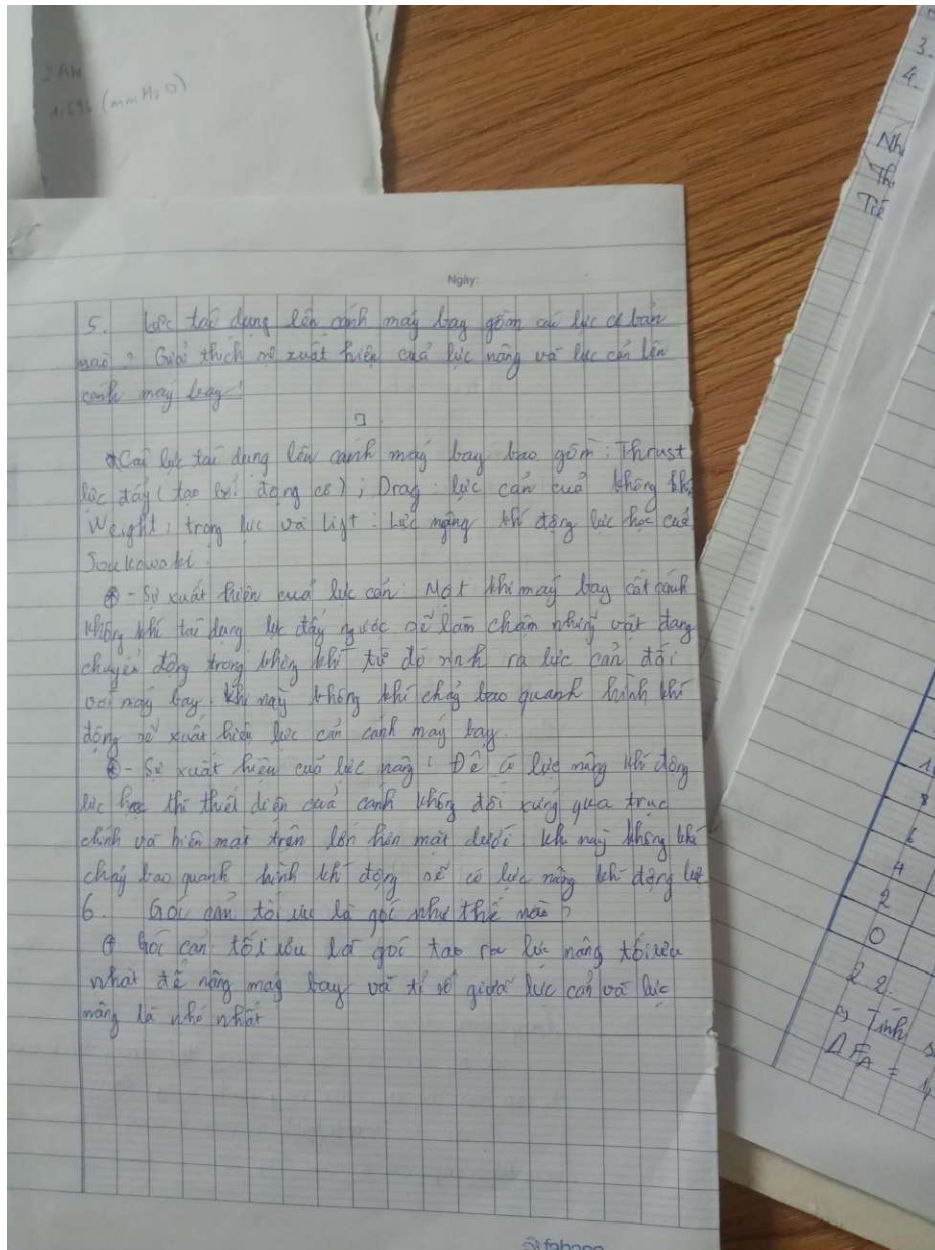 JAN
(mmH₂O)
Ngày:
5. Lực tác dụng lên cánh máy bay gồm các lực cơ bản
nào? Giải thích sự xuất hiện của lực nâng và lực cản lên
cánh máy bay!
* Các lực tác dụng lên cánh máy bay bao gồm: Thrust
lực đẩy (tạo bởi động cơ); Drag: lực cản của không khí
Weight: trọng lực và Lift: Lực nâng khí động lực học của
Joukowski.
⊕ - Sự xuất hiện của lực cản: Một khi máy bay cất cánh
không khí tác dụng lực đẩy ngược để làm chậm những vật đang
chuyển động trong không khí từ đó sinh ra lực cản đối
với máy bay. khi này không khí chảy bao quanh hình khí
động sẽ xuất hiện lực cản cánh máy bay.
⊕ - Sự xuất hiện của lực nâng: Để có lực nâng khí động
lực học thì thiết diện của cánh không đối xứng qua trục
chính và biên mặt trên lớn hơn mặt dưới khi này không khí
chảy bao quanh hình khí động sẽ có lực nâng khí động lực
6. Góc cản tối ưu là góc như thế nào?
⊕ Góc cản tối ưu là góc tạo ra lực nâng tối ưu
nhất để nâng máy bay và tỉ số giữa lực cản và lực
nâng là nhỏ nhất
3.
4.
Nh
Th
Tiế
8
6
4
2
0
2.2.
Tính s
ΔF_A =
fahasa